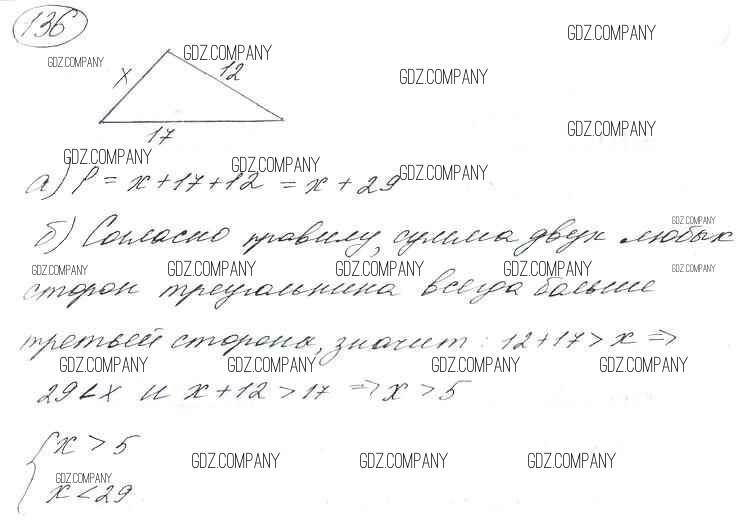 136
GDZ.COMPANY
GDZ.COMPANY
GDZ.COMPANY
GDZ.COMPANY
x
12
GDZ.COMPANY
17
GDZ.COMPANY
GDZ.COMPANY
GDZ.COMPANY
а) P = x + 17 + 12 = x + 29
GDZ.COMPANY
б) Согласно правилу, сумма двух любых
GDZ.COMPANY GDZ.COMPANY GDZ.COMPANY GDZ.COMPANY GDZ.COMPANY
сторон треугольника всегда больше
третьей стороны, значит: 12+17 > x ⇒
GDZ.COMPANY GDZ.COMPANY GDZ.COMPANY GDZ.COMPANY
29 < x и x + 12 > 17 ⇒ x > 5
x > 5
GDZ.COMPANY GDZ.COMPANY GDZ.COMPANY
GDZ.COMPANY
x < 29